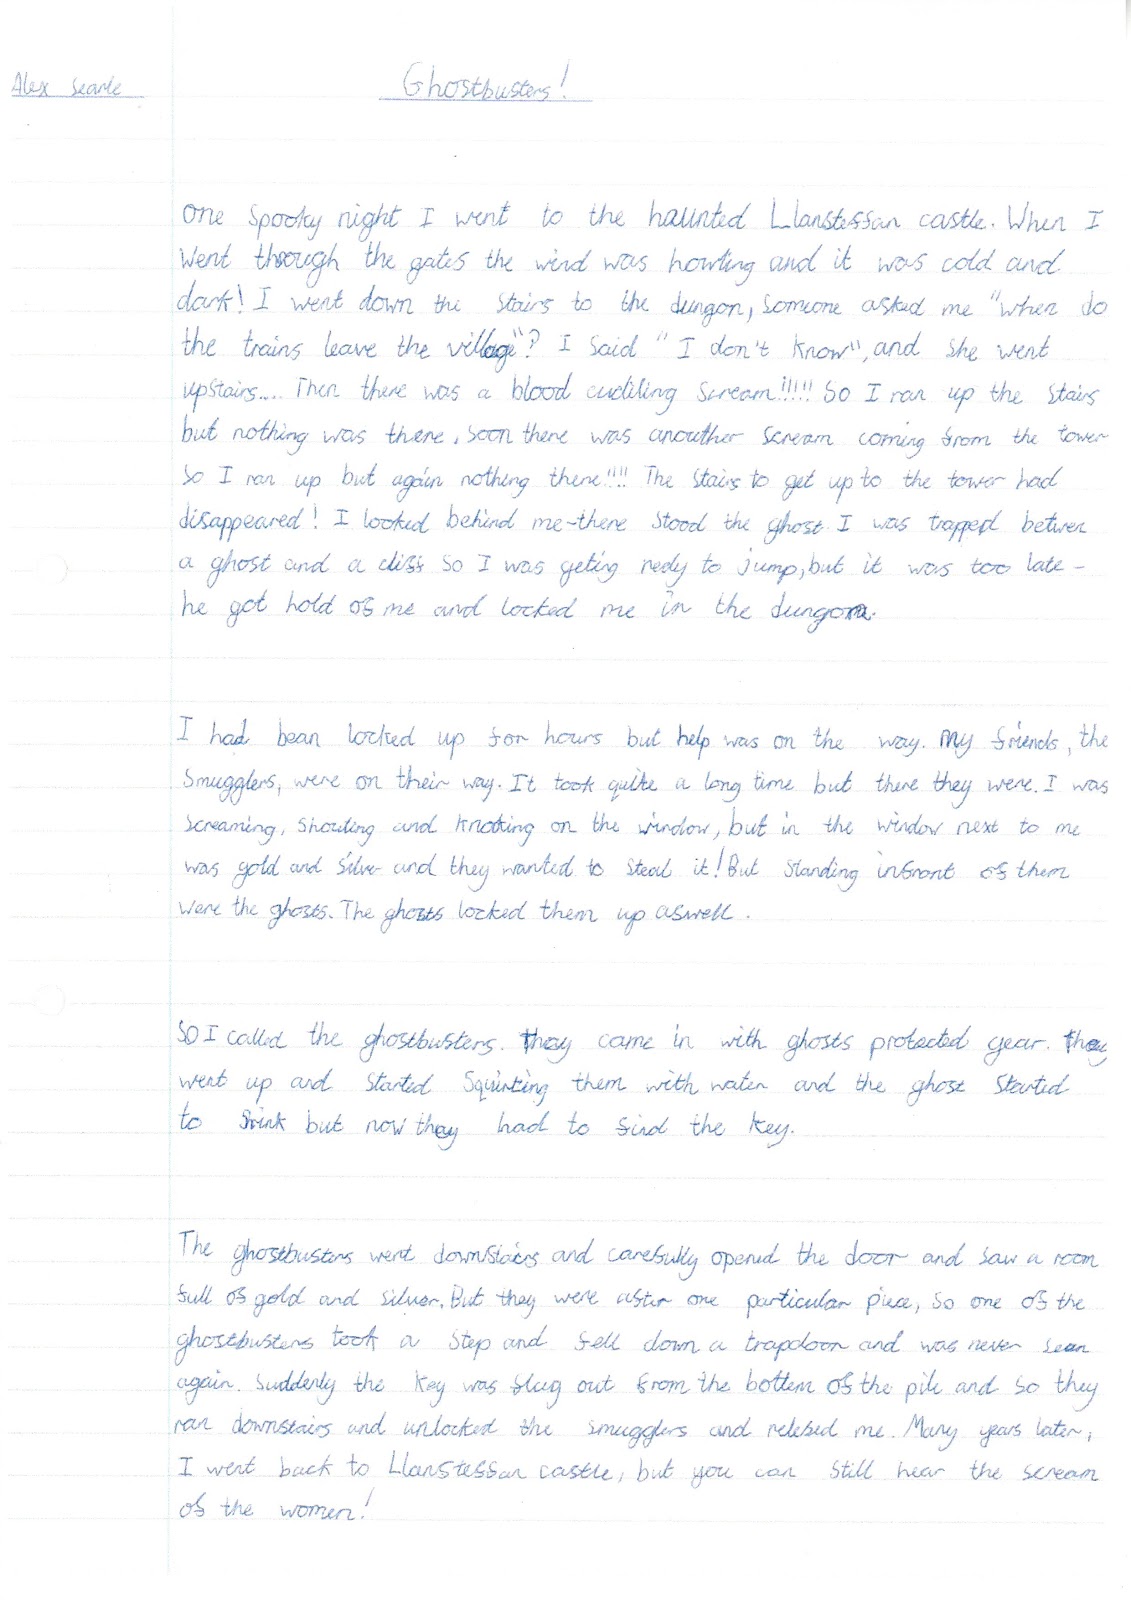 Alex Searle
Ghostbusters!
One Spooky night I went to the haunted Llanstessan castle. When I
Went through the gates the wind was howling and it was cold and
dark! I went down the stairs to the dungon, Someone asked me "when do
the trains leave the village"? I Said "I don't know", and she went
upstairs.... Then there was a blood cudiling scream!!!!! So I ran up the stairs
but nothing was there. Soon there was anouther scream coming from the tower
So I ran up but again nothing there!!!! The stairs to get up to the tower had
disappeared! I looked behind me-there stood the ghost. I was trapped betwen
a ghost and a cliff so I was geting redy to jump, but it was too late -
he got hold of me and locked me in the dungon.
I had bean locked up for hours but help was on the way. My friends, the
Smugglers, were on their way. It took quite a long time but there they were. I was
screaming, shouting and knocking on the window, but in the window next to me
was gold and silver and they wanted to steal it! But standing infront of them
were the ghosts. The ghosts locked them up aswell.
So I called the ghostbusters. They came in with ghosts protected gear. They
went up and started Squirting them with water and the ghost started
to Srink but now they had to find the key.
The ghostbusters went downstairs and carefully opened the door and saw a room
full of gold and silver. But they were after one particular piece, so one of the
ghostbusters took a step and fell down a trapdoor and was never seen
again. Suddenly the key was flug out from the bottem of the pile and so they
ran downstairs and unlocked the smugglers and relesed me. Many years later,
I went back to Llanstessan castle, but you can still hear the scream
of the women!